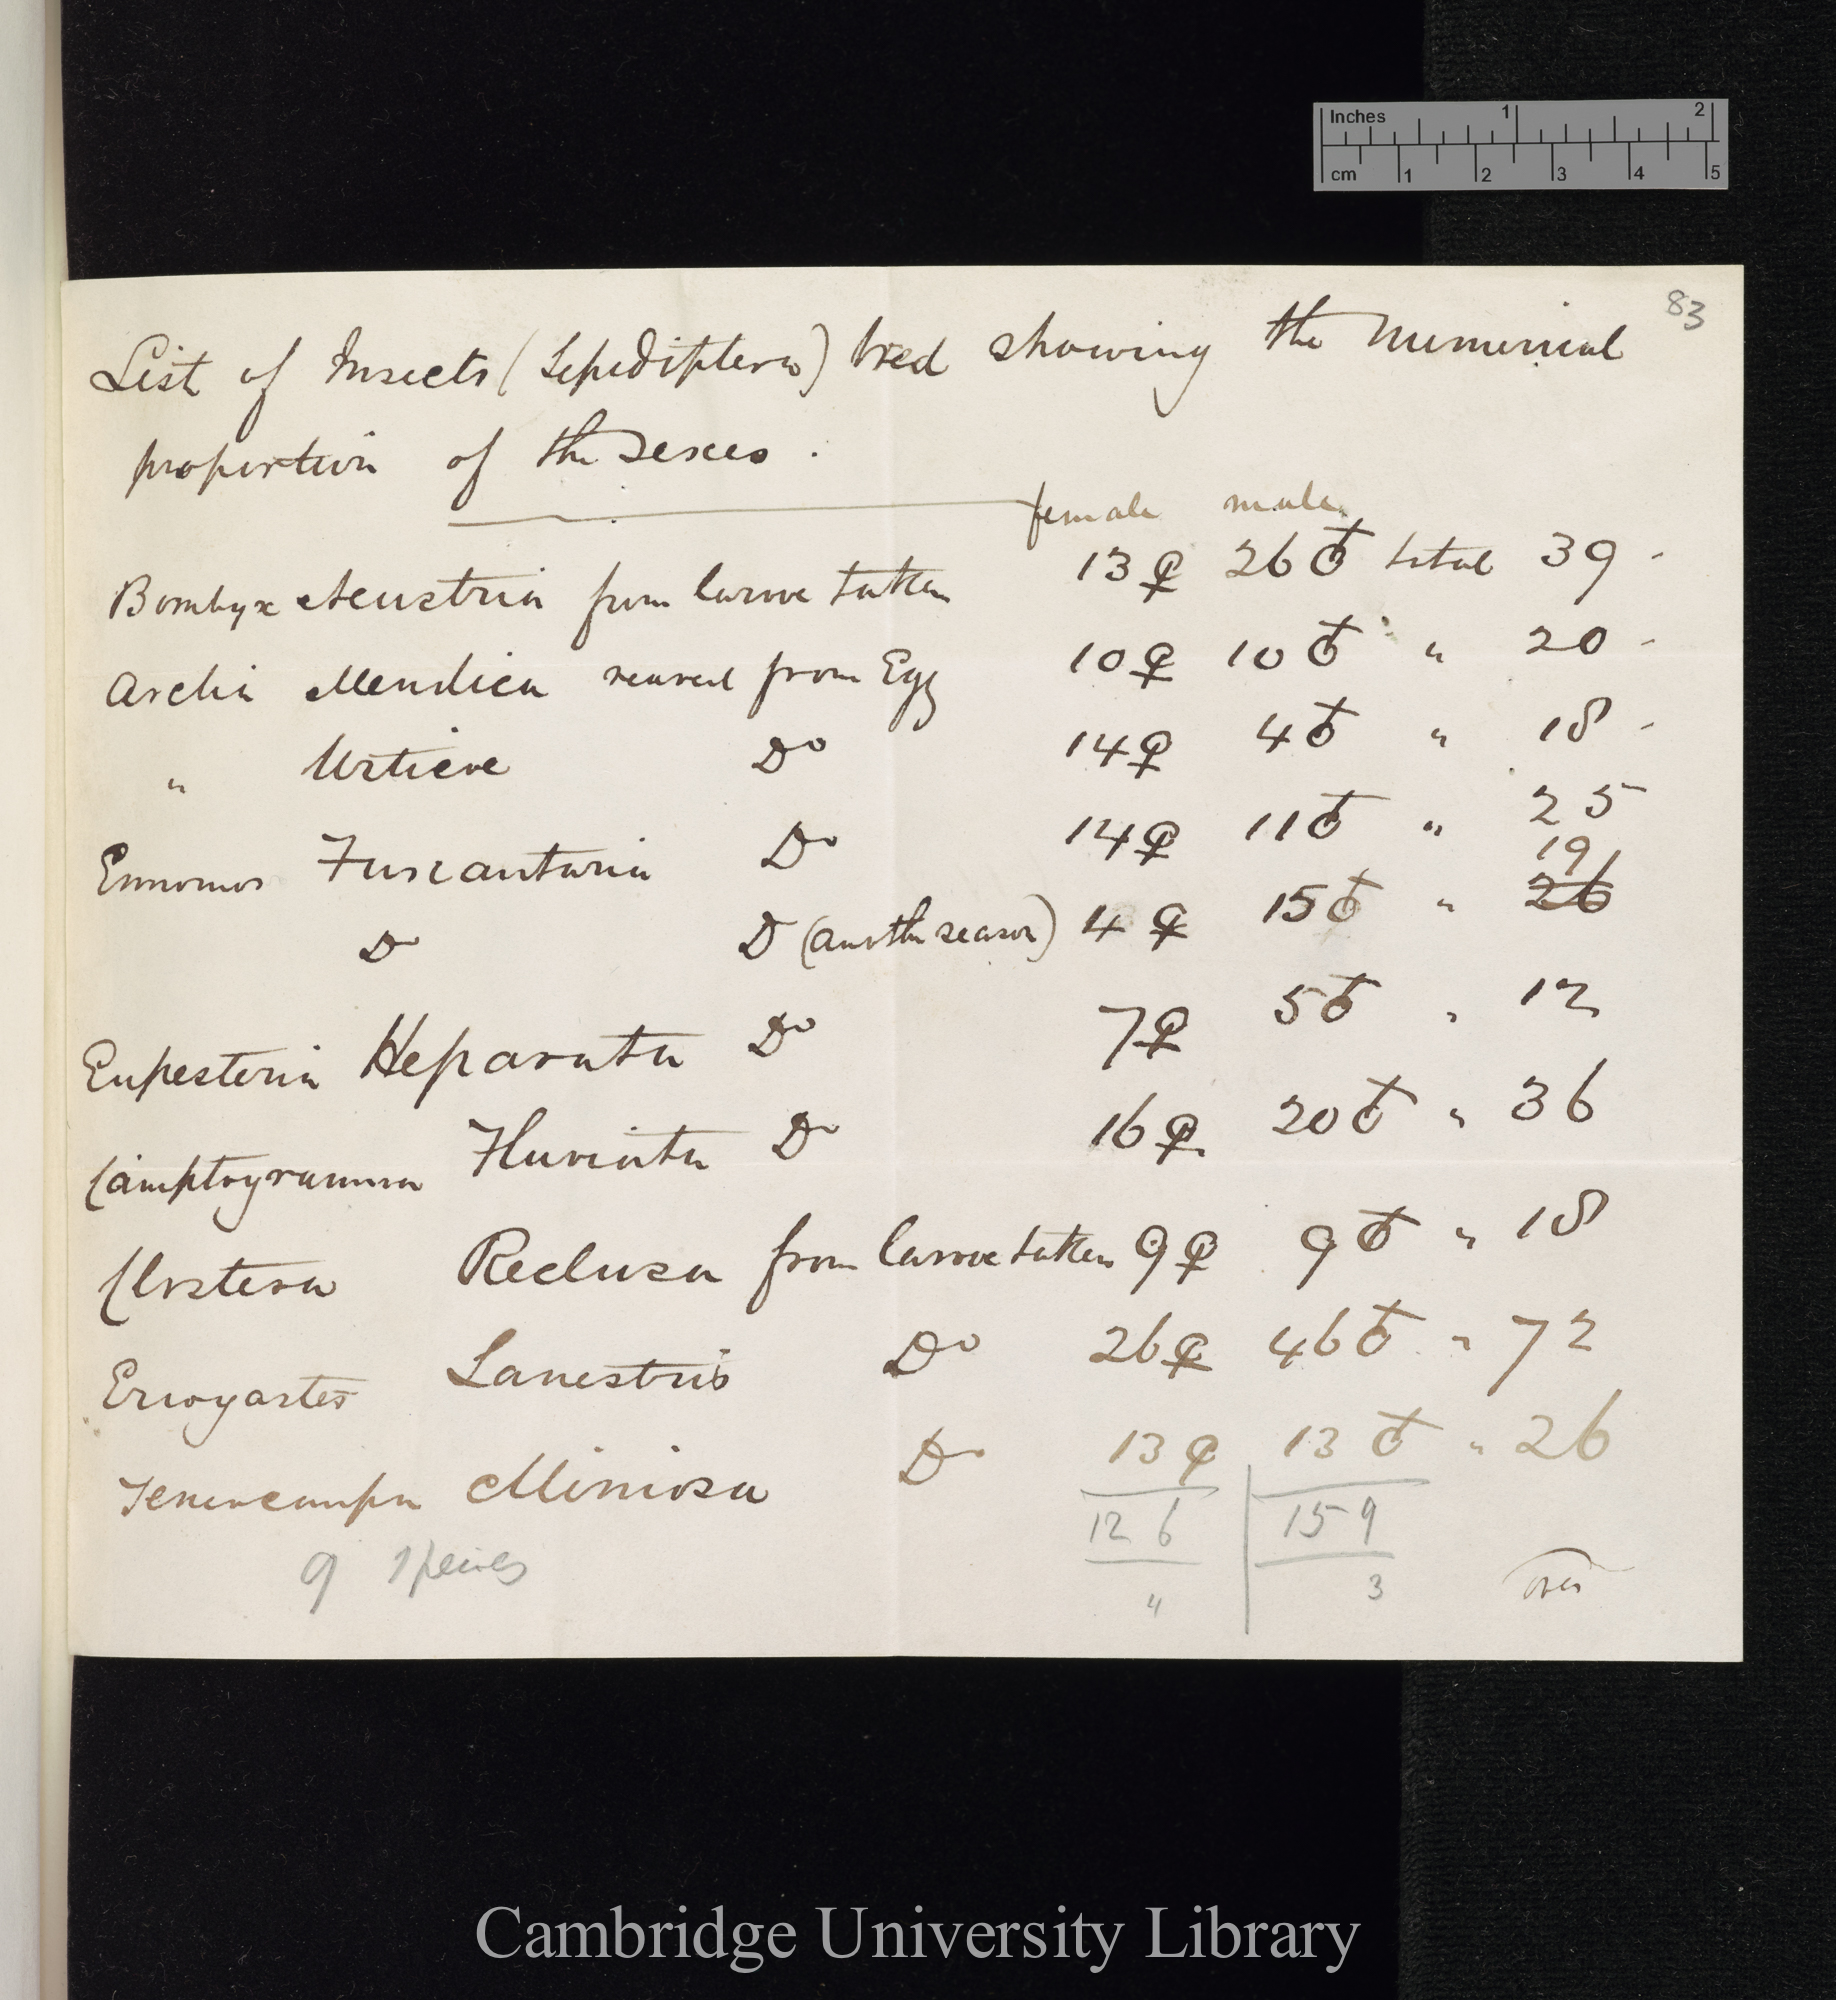 Inches 1 2
cm 1 2 3 4 5
83
List of Insects (Lepidiptera) bred showing the Numerical
proportion of the Sexes.
female male
Bombyx Neustria from larvae taken 13♀ 26♂ total 39 -
Arctia Mendica reared from Egg 10♀ 10♂ " 20 -
" Urticae Do 14♀ 4♂ " 18 -
Ennomos Fuscantaria Do 14♀ 11♂ " 25
19
Do Do (another season) 4♀ 15♂ " 26
Eupesteria Heparata Do 7♀ 5♂ " 12
Camptogramma Fluviata Do 16♀ 20♂ " 36
Clostera Reclusa from larvae taken 9♀ 9♂ " 18
Eriogaster Lanestris Do 26♀ 46♂ " 72
Teniocampa Miniosa Do 13♀ 13♂ " 26
126 159
9 species
4 3
over
Cambridge University Library